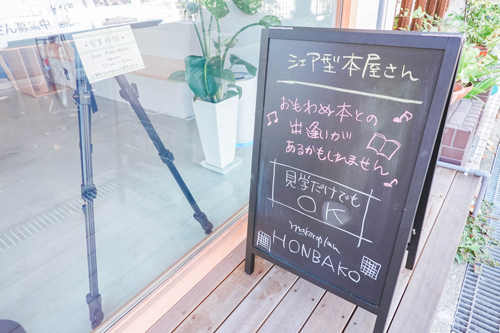 シェア型本屋さん
おもわぬ本との
出逢いが
あるかもしれません
見学だけでも
OK
HONBAKO